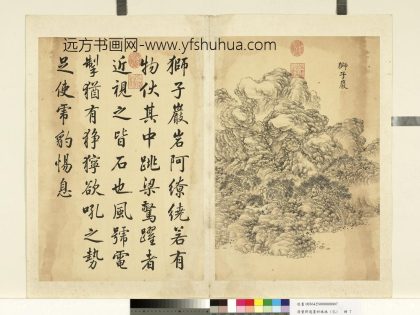 远方书画网- www.yfshuhua.com
獅子巖
獅子巖岩阿繚繞若有
物伏其中跳梁驚躍者
近視之皆石也風號電
掣猶有猙獰欲吼之勢
足使豹惕息